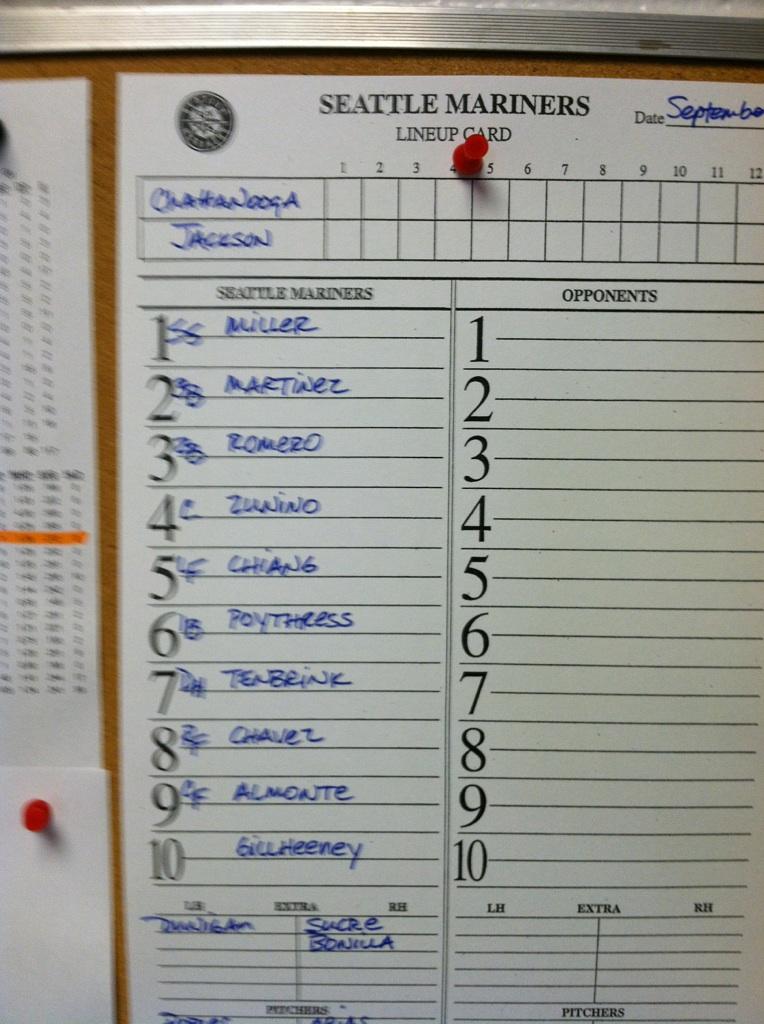 SEATTLE MARINERS
LINEUP CARD
Date Septembe
1 2 3 4 5 6 7 8 9 10 11 12
CHATTANOOGA
JACKSON
SEATTLE MARINERS OPPONENTS
1 SS MILLER 1
2 3B MARTINEZ 2
3 2B ROMERO 3
4 C ZUNINO 4
5 LF CHIANG 5
6 1B POYTHRESS 6
7 DH TENBRINK 7
8 RF CHAVEZ 8
9 CF ALMONTE 9
10 GILLHEENEY 10
LH EXTRA RH LH EXTRA RH
DUNIGAN SUCRE
BONILLA
PITCHERS PITCHERS